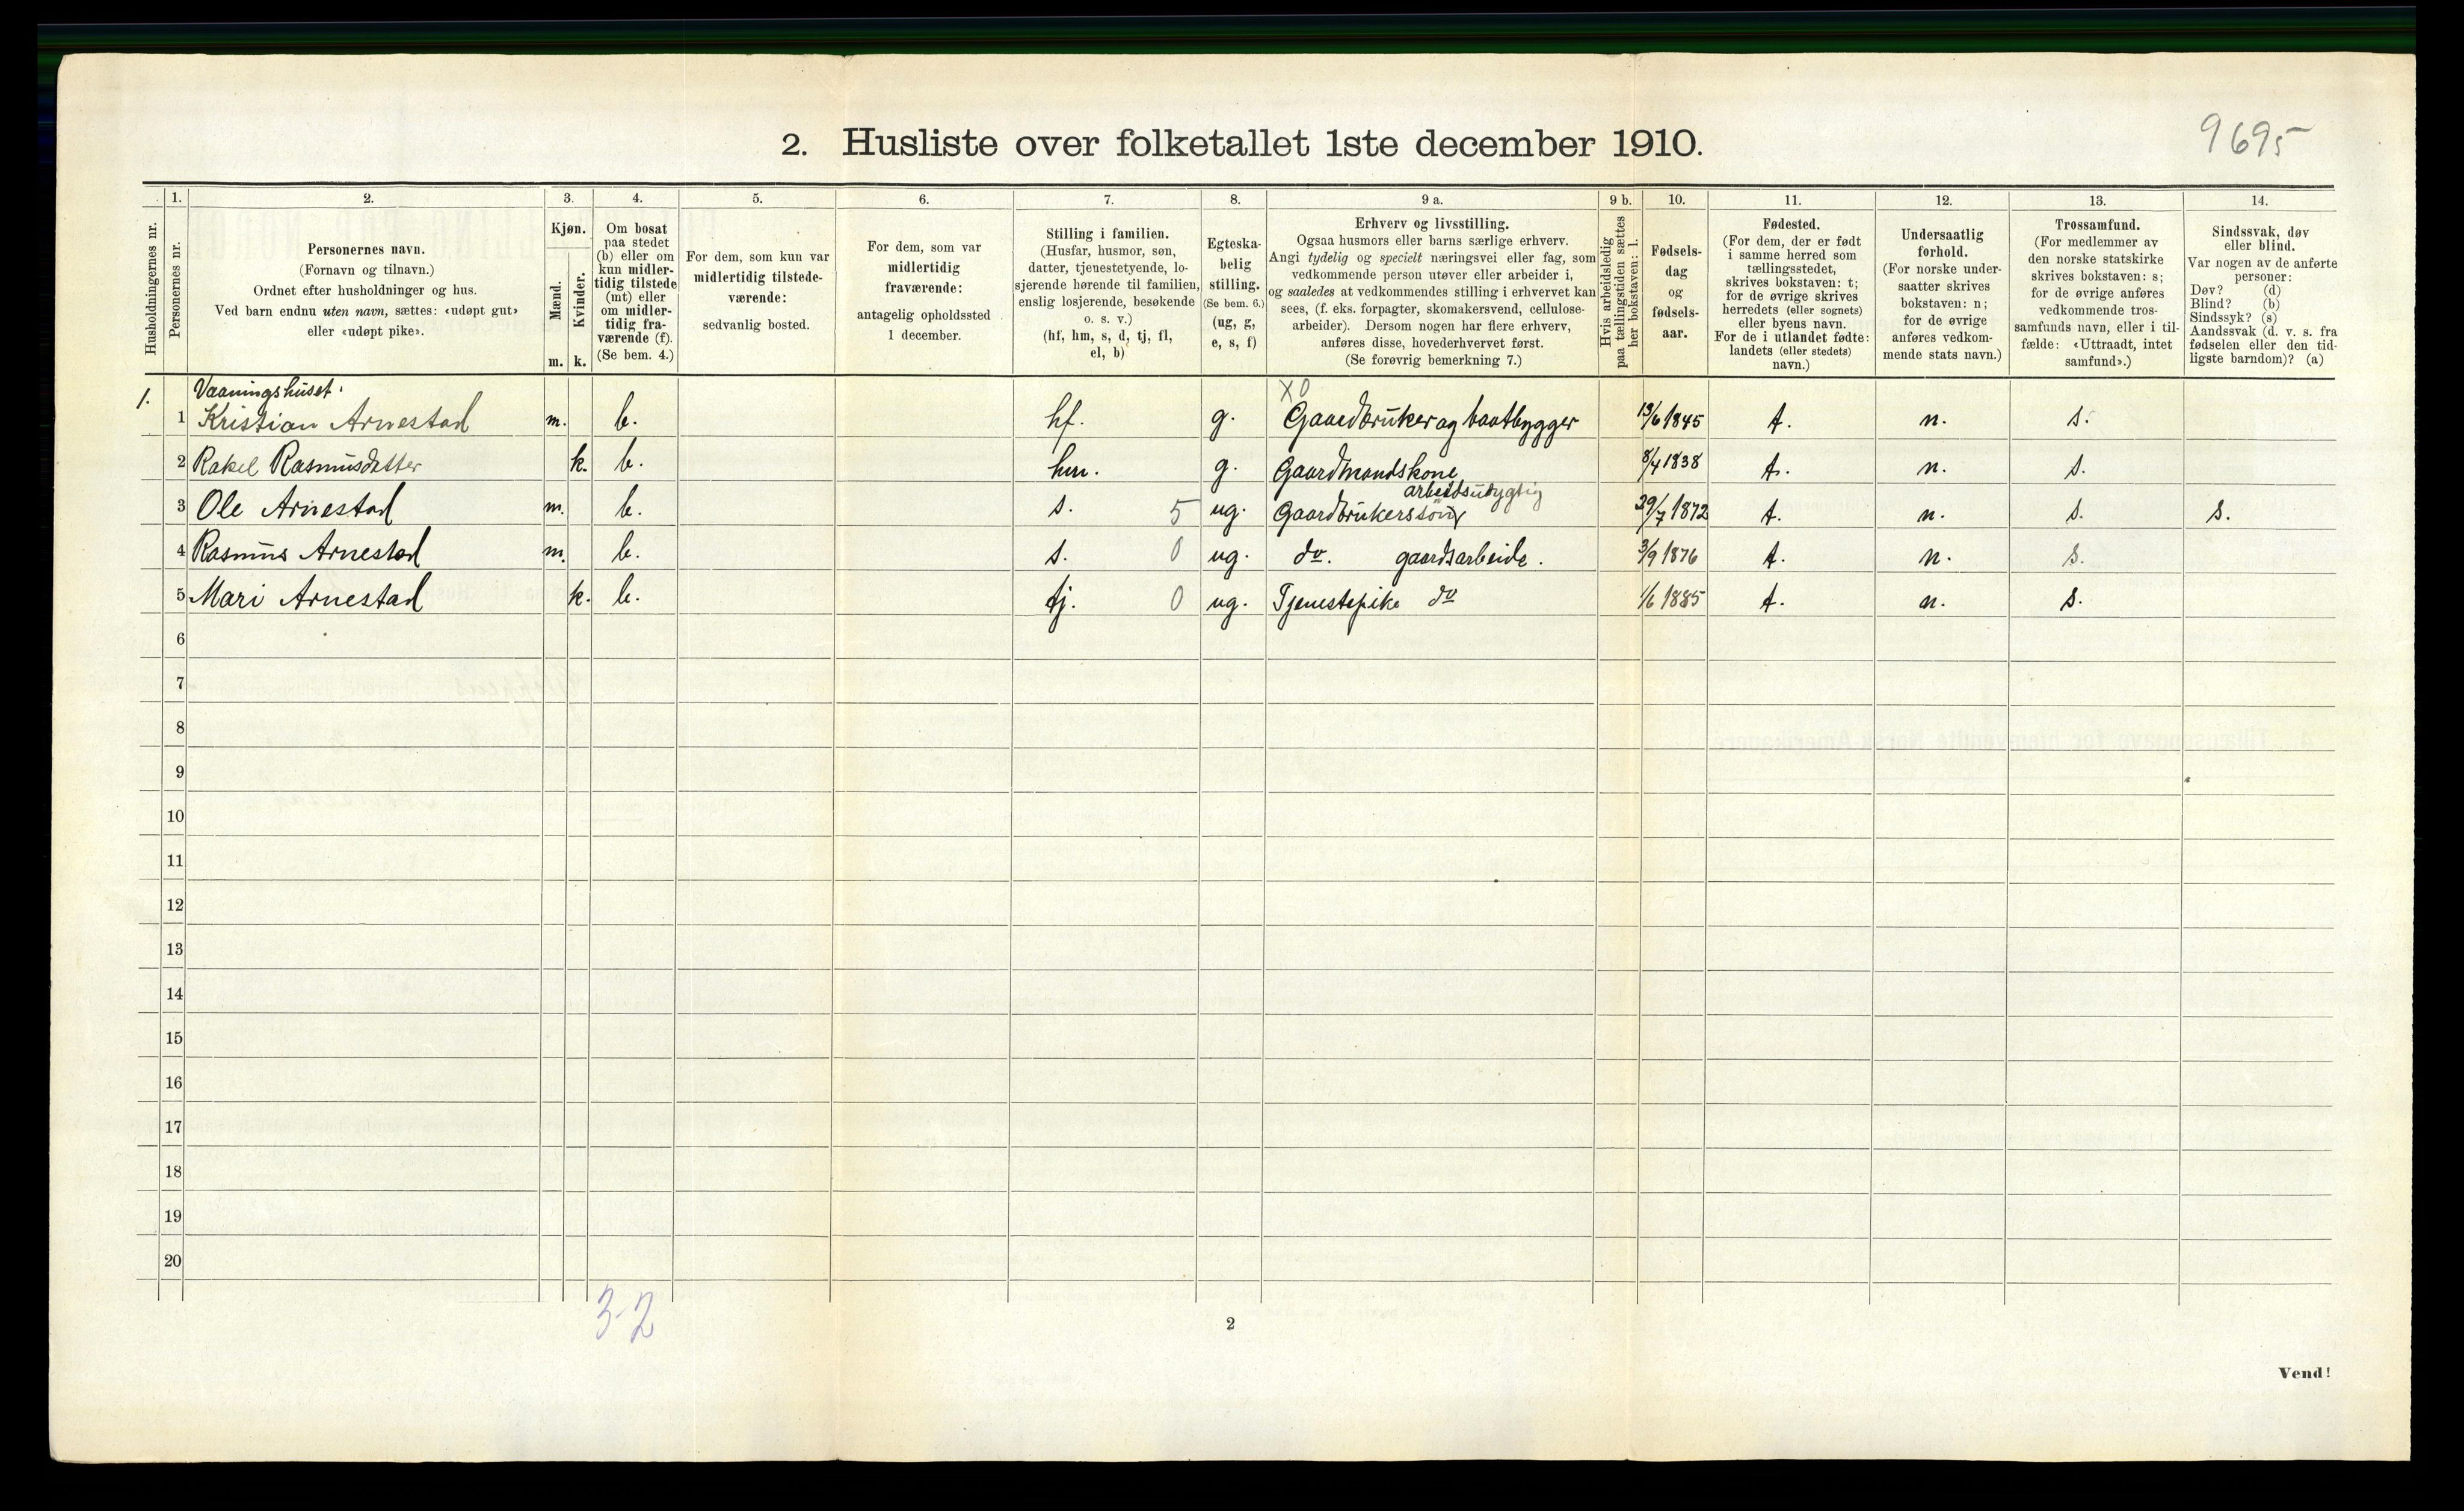 2. Husliste over folketallet 1ste december 1910.
9695
Husholdningernes nr.
1.
Personernes nr.
2.
Personernes navn.
(Fornavn og tilnavn.)
Ordnet efter husholdninger og hus.
Ved barn endnu uten navn, sættes: «udøpt gut»
eller «udøpt pike».
3.
Kjøn.
Mænd.
Kvinder.
m. k.
4.
Om bosat
paa stedet
(b) eller om
kun midler-
tidig tilstede
(mt) eller
om midler-
tidig fra-
værende (f).
(Se bem. 4.)
5.
For dem, som kun var
midlertidig tilstede-
værende:
sedvanlig bosted.
6.
For dem, som var
midlertidig
fraværende:
antagelig opholdssted
1 december.
7.
Stilling i familien.
(Husfar, husmor, søn,
datter, tjenestetyende, lo-
sjerende hørende til familien,
enslig losjerende, besøkende
o. s. v.)
(hf, hm, s, d, tj, fl,
el, b)
8.
Egteska-
belig
stilling.
(Se bem. 6.)
(ug, g,
e, s, f)
9 a.
Erhverv og livsstilling.
Ogsaa husmors eller barns særlige erhverv.
Angi tydelig og specielt næringsvei eller fag, som
vedkommende person utøver eller arbeider i,
og saaledes at vedkommendes stilling i erhvervet kan
sees, (f. eks. forpagter, skomakersvend, cellulose-
arbeider). Dersom nogen har flere erhverv,
anføres disse, hovederhvervet først.
(Se forøvrig bemerkning 7.)
9 b.
Hvis arbeidsledig
paa tællingstiden sættes
her bokstaven: l.
10.
Fødsels-
dag
og
fødsels-
aar.
11.
Fødested.
(For dem, der er født
i samme herred som
tællingsstedet,
skrives bokstaven: t;
for de øvrige skrives
herredets (eller sognets)
eller byens navn.
For de i utlandet fødte:
landets (eller stedets)
navn.)
12.
Undersaatlig
forhold.
(For norske under-
saatter skrives
bokstaven: n;
for de øvrige
anføres vedkom-
mende stats navn.)
13.
Trossamfund.
(For medlemmer av
den norske statskirke
skrives bokstaven: s;
for de øvrige anføres
vedkommende tros-
samfunds navn, eller i til-
fælde: «Uttraadt, intet
samfund».)
14.
Sindssvak, døv
eller blind.
Var nogen av de anførte
personer:
Døv? (d)
Blind? (b)
Sindssyk? (s)
Aandssvak (d. v. s. fra
fødselen eller den tid-
ligste barndom)? (a)
Vaaningshuset: X0
1. 1 Kristian Arnestad m. b. hf. g. Gaardbruker og baatbygger 13/6 1845 t. n. s.
2 Rakel Rasmusdatter k. b. hm. g. Gaardmandskone 8/4 1838 t. n. s.
arbeidsudygtig
3 Ole Arnestad m. b. s. 5 ug. Gaardbrukerssøn 29/7 1872 t. n. s. s.
4 Rasmus Arnestad m. b. s. 0 ug. do. gaardsarbeide. 3/9 1876 t. n. s.
5 Mari Arnestad k. b. tj. 0 ug. Tjenestepike do 1/6 1885 t. n. s.
6
7
8
9
10
11
12
13
14
15
16
17
18
19
20
3-2
2
Vend!